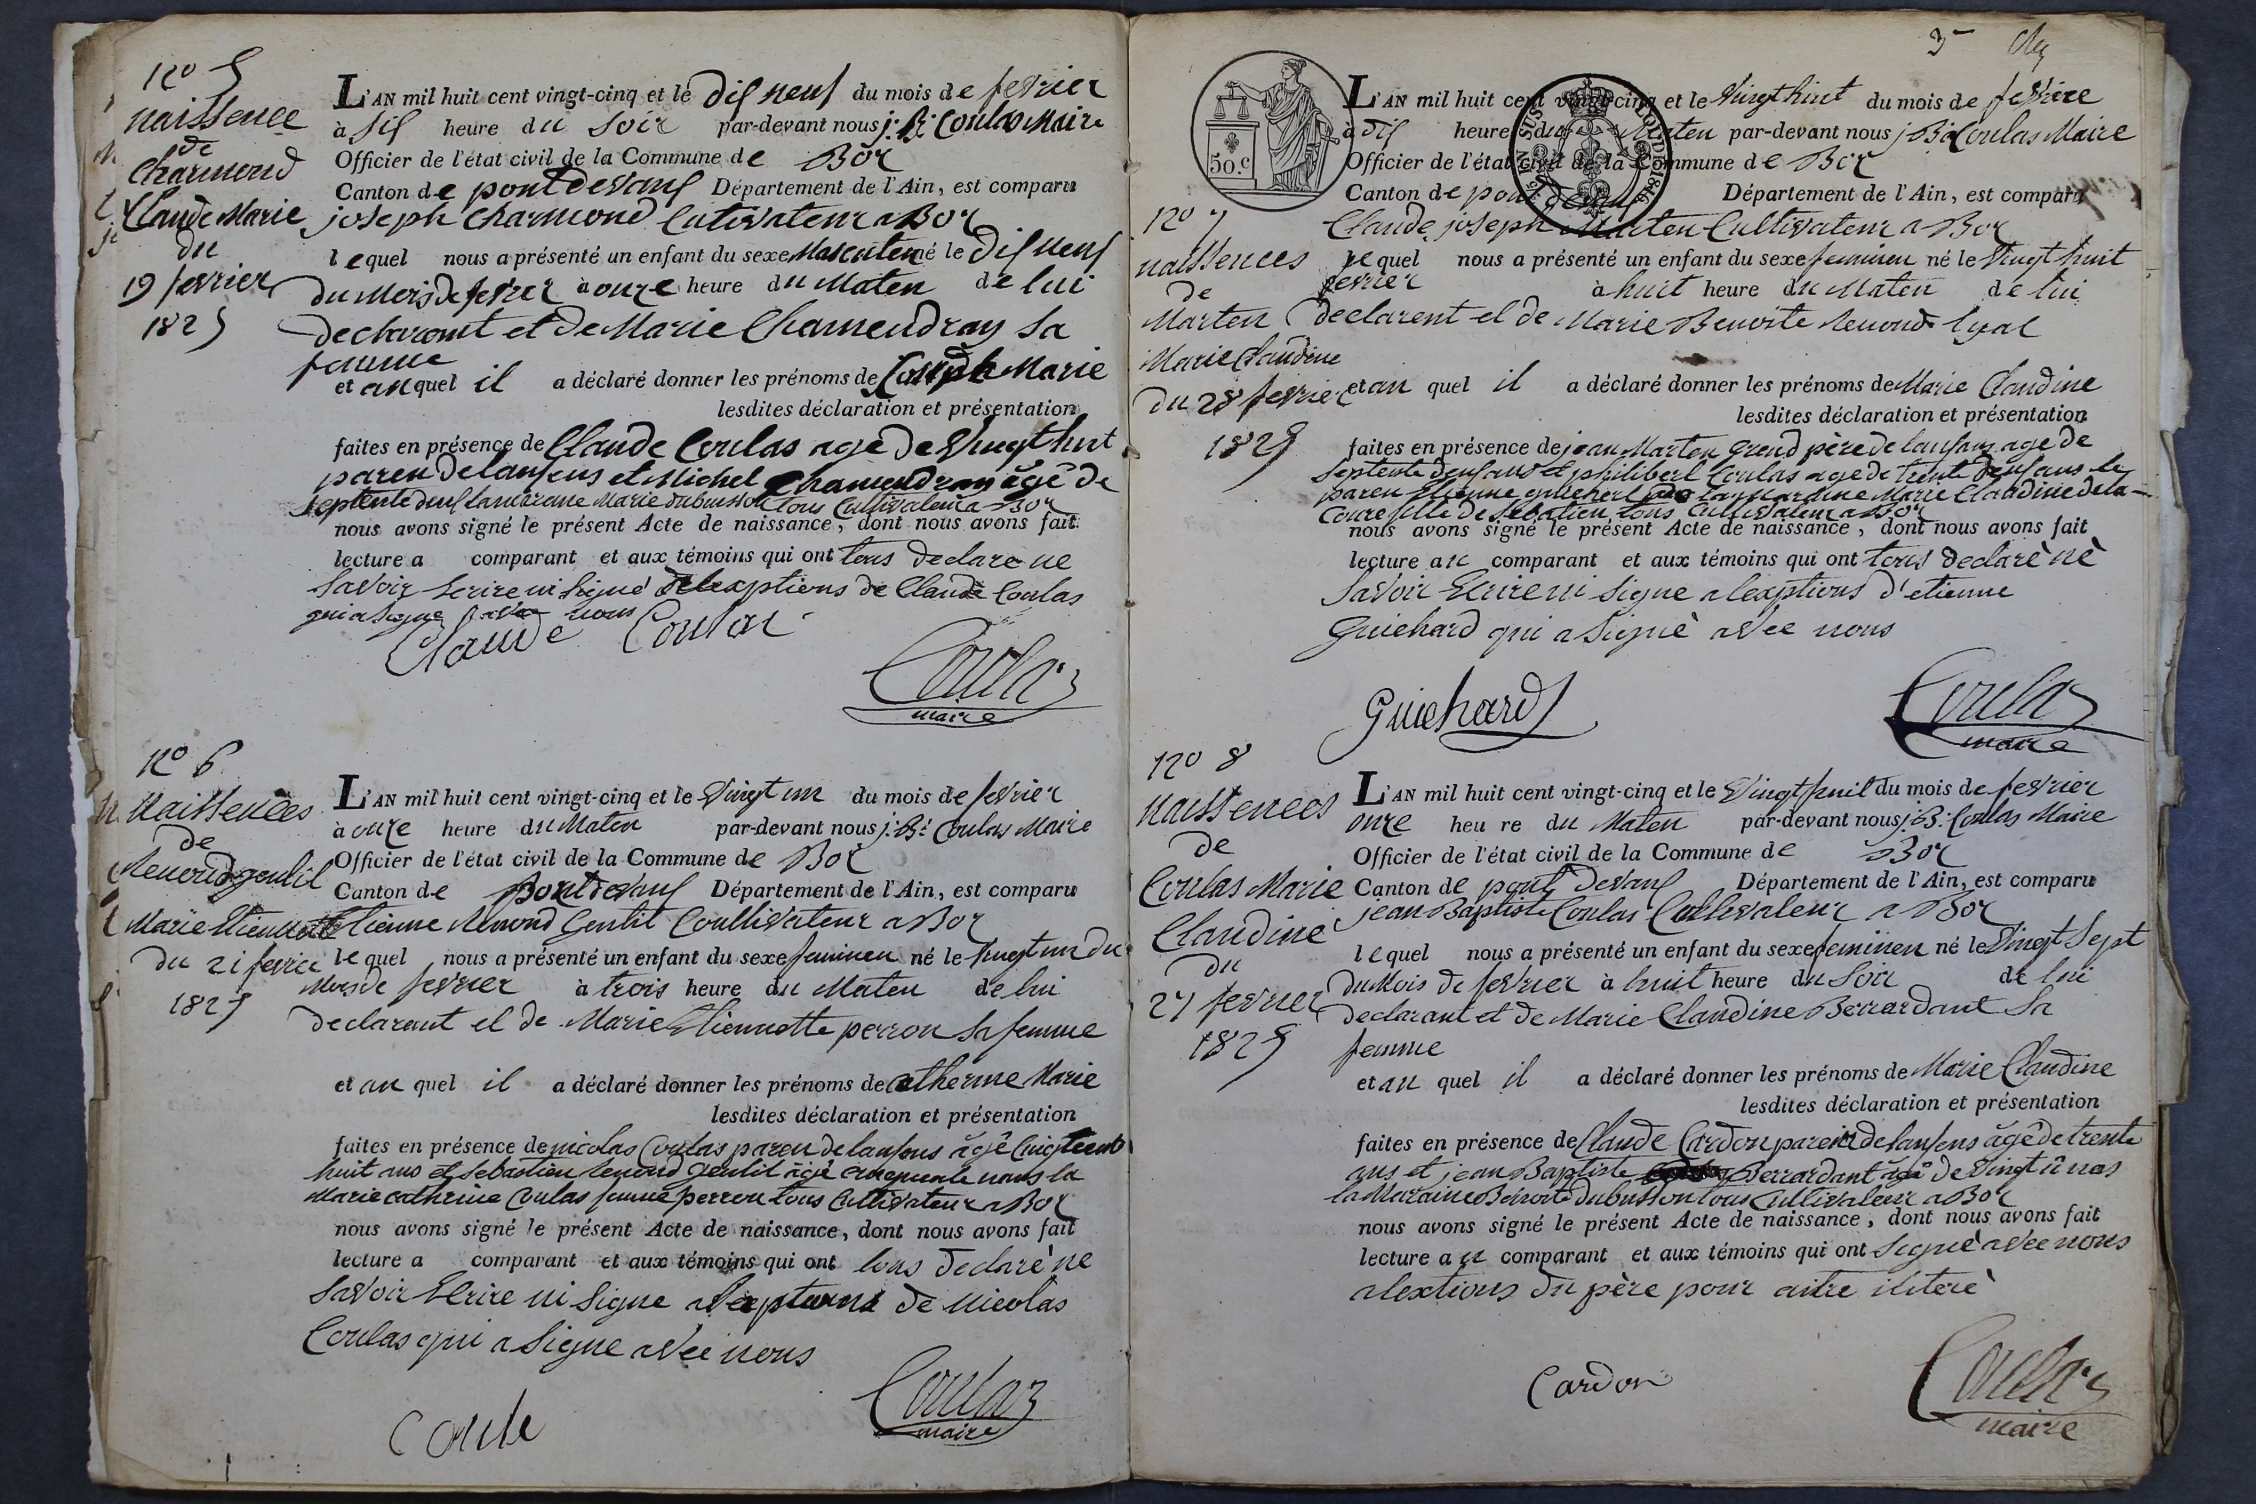 no 5
naissence
de
Charmond
Claude Marie
du
19 fevrier
1825
L'AN mil huit cent vingt-cinq et le dix neuf du mois de fevrier
à six heure du soir par-devant nous j. B. Coulas Maire
Officier de l'état civil de la Commune de Bor
Canton de pontdevaux Département de l'Ain, est comparu
joseph Charmond Cutivateur a Bor
lequel nous a présenté un enfant du sexe Masculen né le dix neuf
du Mois de fevrier à onze heure du Maten de lui
declarant et de Marie Chamendray sa
femme
et auquel il a déclaré donner les prénoms de Marie
lesdites déclaration et présentation
faites en présence de Claude Coulas agé de Vingt huit
paren delanfens et Michel Chamendray âgé de
septente Marie dubuisson tous Cultivateur a Bor
nous avons signé le présent Acte de naissance, dont nous avons fait
lecture a comparant et aux témoins qui ont tous declare ne
savoirEcrire ni signé de Claude Coulas
qui a signe avee nous
Claude Coulas
Coulas
maire
no 6
Naissences
de
Renoud gentil
Marie Etiennette
du 21 fevrier
1825
L'AN mil huit cent vingt-cinq et le Vingt un du mois de fevrier
à onze heure du Maten par-devant nous j. B. Coulas Maire
Officier de l'état civil de la Commune de Bor
Canton de pontdevaux Département de l'Ain, est comparu
Etienne Renoud Gentil Coultivateur a Bor
lequel nous a présenté un enfant du sexe feminen né le Vingt un du
Mois de fevrier à trois heure du Maten de lui
declarant et de Marie Etiennette perron sa femme
et au quel il a déclaré donner les prénoms de Marie
lesdites déclaration et présentation
faites en présence de nicolas Coulas paren delanfens âgé
huit ans et sebastien Renoud gentil âgé
Marie cathrine Coulas femme perron tous Cultivateur a Bor
nous avons signé le présent Acte de naissance, dont nous avons fait
lecture a comparant et aux témoins qui ont tous declaré ne
savoir Ecrire ni signe de nicolas
Coulas qui a signe avee nous
Coulas
maire
3
50 c
L'AN mil huit cent vingt-cinq et le Vingt huit du mois de fevrier
à dix heure du Maten par-devant nous j B. Coulas Maire
Officier de l'état civil de la Commune de Bor
Canton de pont devaux Département de l'Ain, est comparu
no 7
naissences
de
Marten
Marie Claudine
du 28 fevrier
1825
Claude joseph Marten Cultivateur a Bor
lequel nous a présenté un enfant du sexe feminen né le Vingt huit
fevrier à huit heure du Maten de lui
declarent et de Marie Benoite Renoud
et au quel il a déclaré donner les prénoms de Marie Claudine
lesdites déclaration et présentation
faites en présence de jean Marten grend père de lanfans agé de
septente et philibert Coulas age de trente
paren Etienne guichard Marie Claudine
fille de sebatien tous Cultivateur a Bor
nous avons signé le présent Acte de naissance, dont nous avons fait
lecture au comparant et aux témoins qui ont tous declarè nè
savoir Ecrire ni signe a d'etienne
Guichard qui a signè avee nous
Guichard
Coulas
maire
no 8
naissences
de
Coulas Marie
Claudine
du
27 fevrier
1825
L'AN mil huit cent vingt-cinq et le Vingt huit du mois de fevrier
onze heure du Maten par-devant nous j. B. Coulas Maire
Officier de l'état civil de la Commune de Bor
Canton de pont devaux Département de l'Ain, est comparu
jean Baptiste Coulas Cultivateur a Bor
lequel nous a présenté un enfant du sexe feminen né le Vingt Sept
du Mois de fevrier à huit heure du Soir de lui
declarant et de Marie Claudine Berrardant sa
femme
et au quel il a déclaré donner les prénoms de Marie Claudine
lesdites déclaration et présentation
faites en présence de Claude Cardon parein delanfens âgé de trente
ans et jean Baptiste Berrardant âgé de Vingt
la Maraine Benoite dubuisson tous Cultivateur a Bor
nous avons signé le présent Acte de naissance, dont nous avons fait
lecture au comparant et aux témoins qui ont signé avee nous
alextions du père pour aitre iliterè
Cardon
Coulas
maire